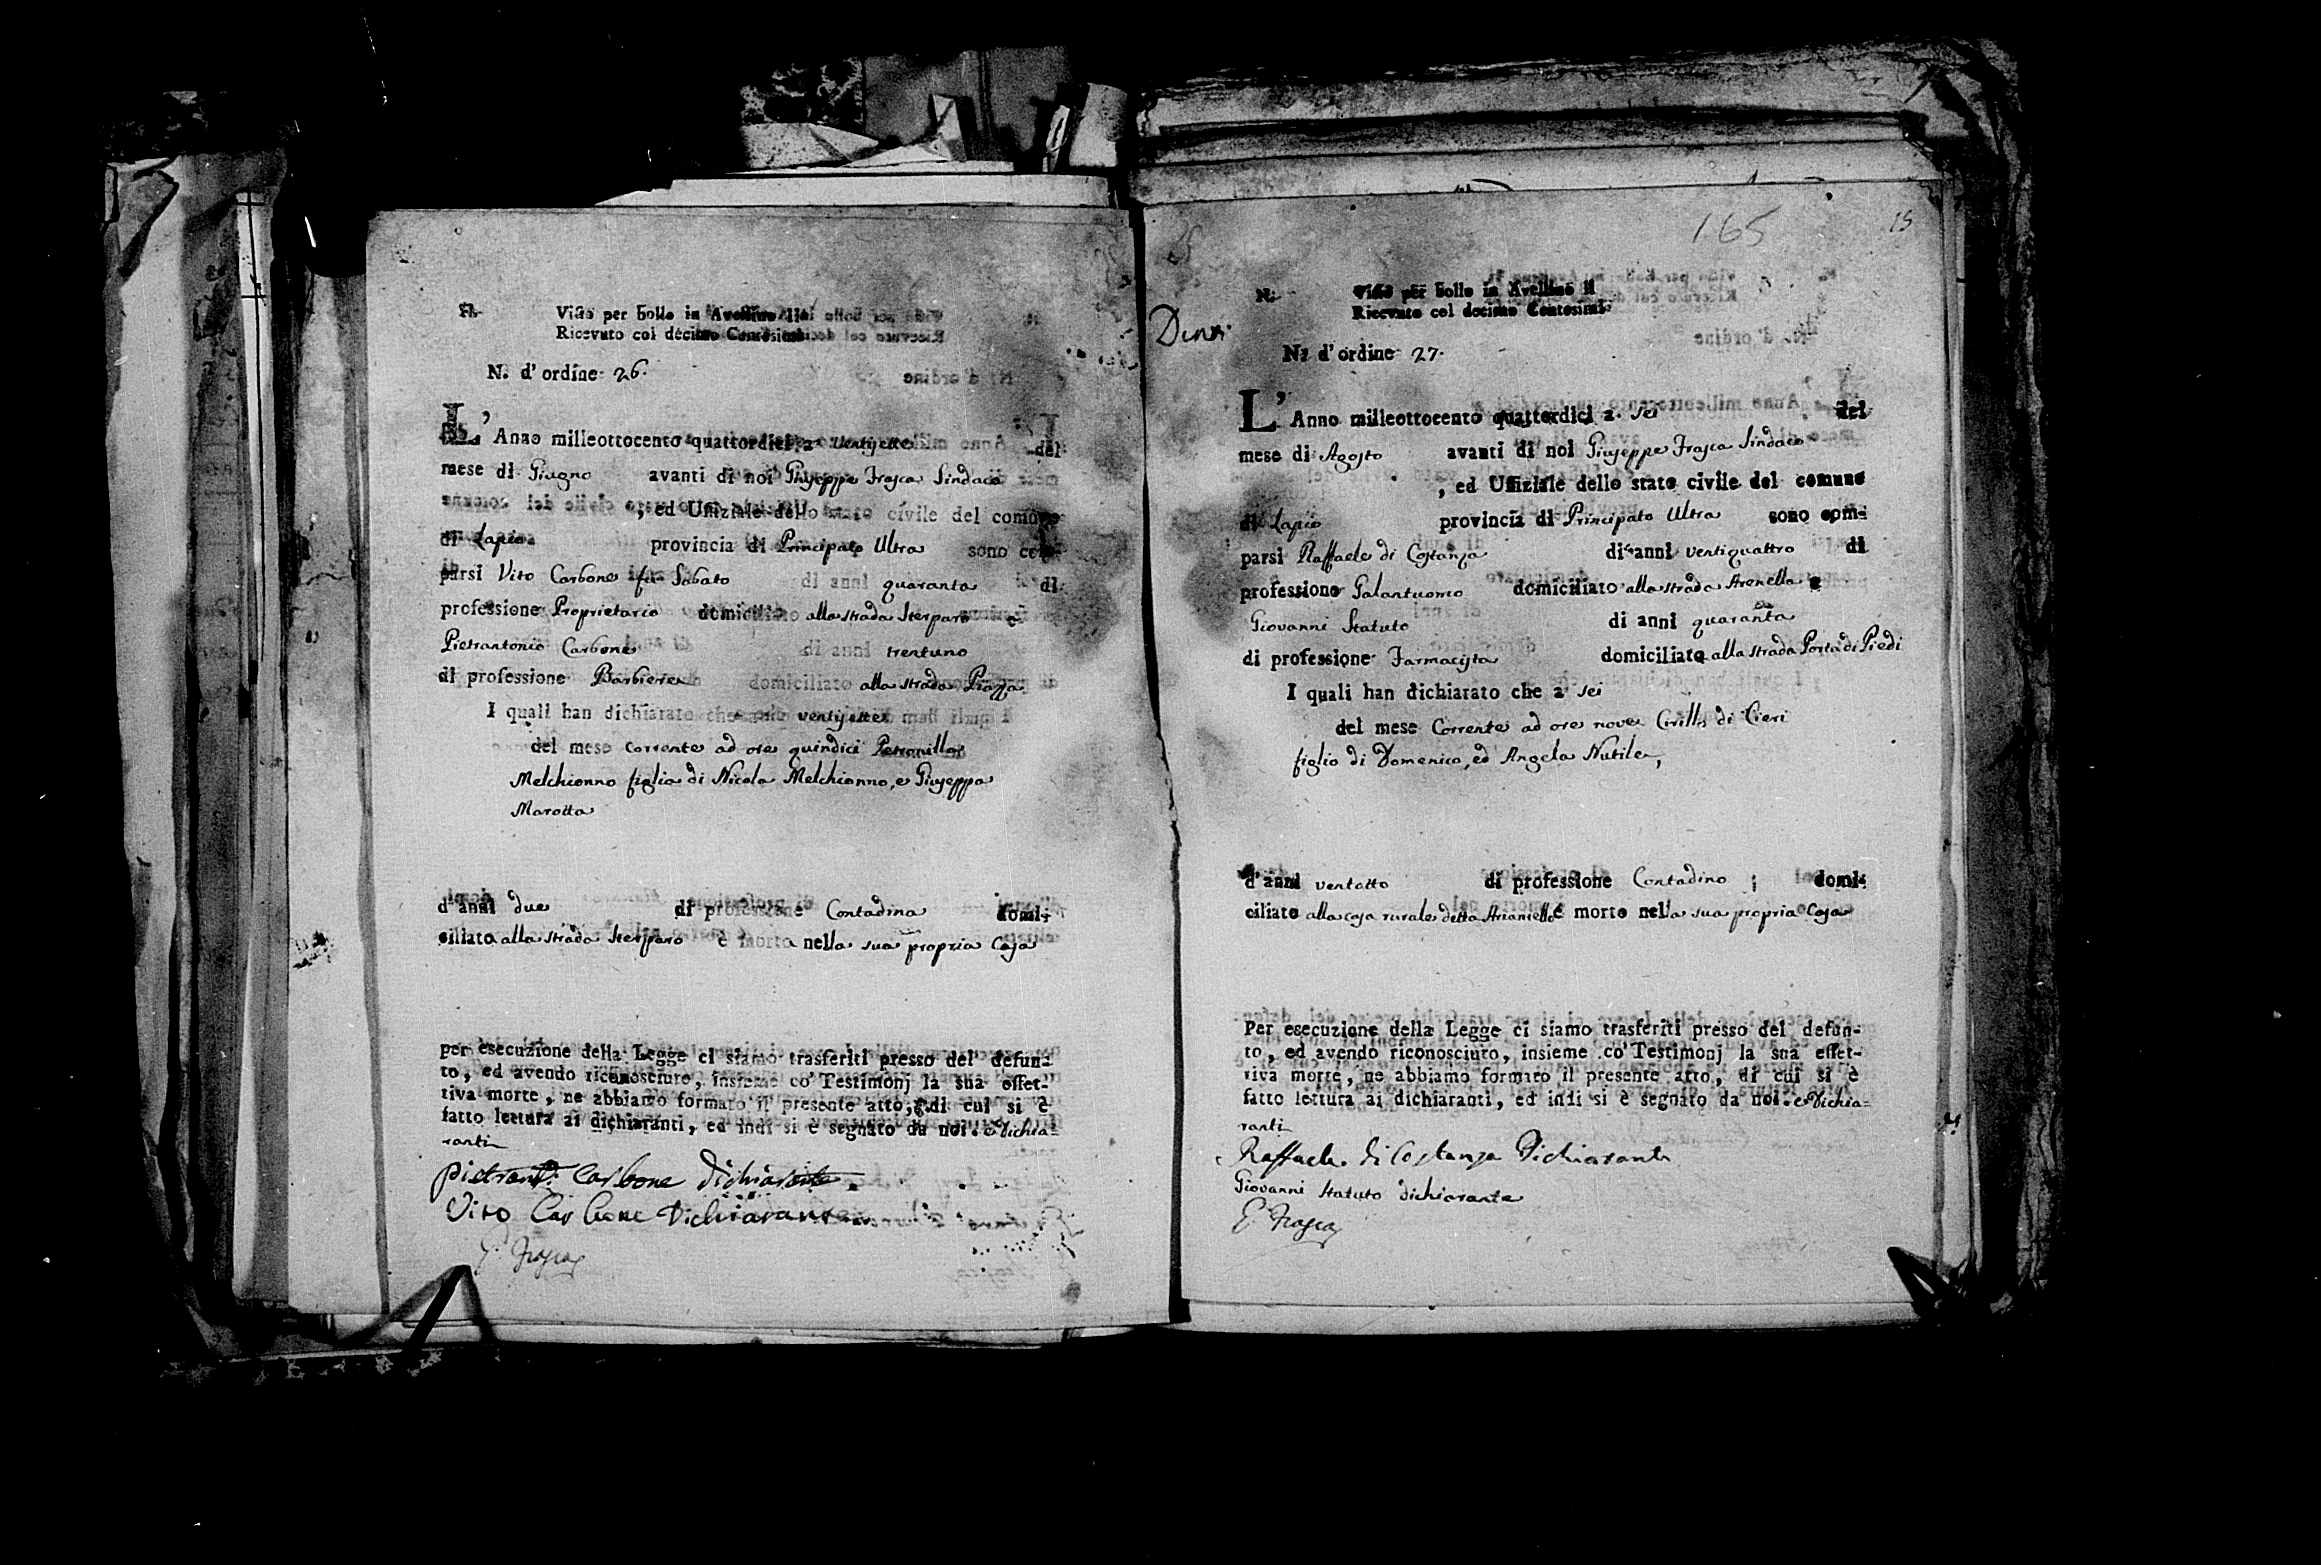 N.
Visto per bollo in Avellino il
Ricevuto col decimo Centesimi
N. d'ordine 26.
L'Anno milleottocento quattordici a ventisette del
mese di Giugno avanti di noi Giuseppe Frasca Sindaco
, ed Uffiziale dello stato civile del comune
di Lapio provincia di Principato Ultra sono com-
parsi Vito Carbone fu Sabato di anni quaranta di
professione Proprietario domiciliato alla strada Sterparo e
Pietrantonio Carbone di anni trentuno
di professione Barbiere domiciliato alla strada Piazza
I quali han dichiarato che a ventisette
del mese corrente ad ore quindici Petronilla
Melchionno figlia di Nicola Melchionno, e Giuseppa
Marotta
d'anni due di professione Contadina domi-
ciliato alla strada Sterparo è morta nella sua propria Casa
per esecuzione della Legge ci siamo trasferiti presso del defun-
to, ed avendo riconosciuto, insieme co' Testimonj la sua effet-
tiva morte, ne abbiamo formato il presente atto, di cui si è
fatto lettura ai dichiaranti, ed indi si è segnato da noi. e Dichia=
ranti
Pietrant. Carbone Dichiarante.
Vito Carbone Dichiarante
G. Frasca
165
15
N.
Visto per bollo in Avellino il
Ricevuto col decimo Centesimi
N. d'ordine 27.
L'Anno milleottocento quattordici a sei del
mese di Agosto avanti di noi Giuseppe Frasca Sindaco
, ed Uffiziale dello stato civile del comune
di Lapio provincia di Principato Ultra sono com-
parsi Raffaele di Costanza di anni ventiquattro di
professione Galantuomo domiciliato alla strada Arenella e
Giovanni Statuto di anni quaranta
di professione Farmacista domiciliato alla strada Porta di Piedi
I quali han dichiarato che a sei
del mese Corrente ad ore nove Cirillo di Cieri
figlio di Domenico, ed Angela Nutile,
d'anni ventotto di professione Contadino ; domi-
ciliato alla casa rurale detta Arianiello è morto nella sua propria Casa
Per esecuzione della Legge ci siamo trasferiti presso del defun-
to, ed avendo riconosciuto, insieme co' Testimonj la sua effet-
tiva morte, ne abbiamo formato il presente atto, di cui si è
fatto lettura ai dichiaranti, ed indi si è segnato da noi. e Dichia=
ranti
Raffaele di Costanza Dichiarante
Giovanni Statuto dichiarante
G. Frasca